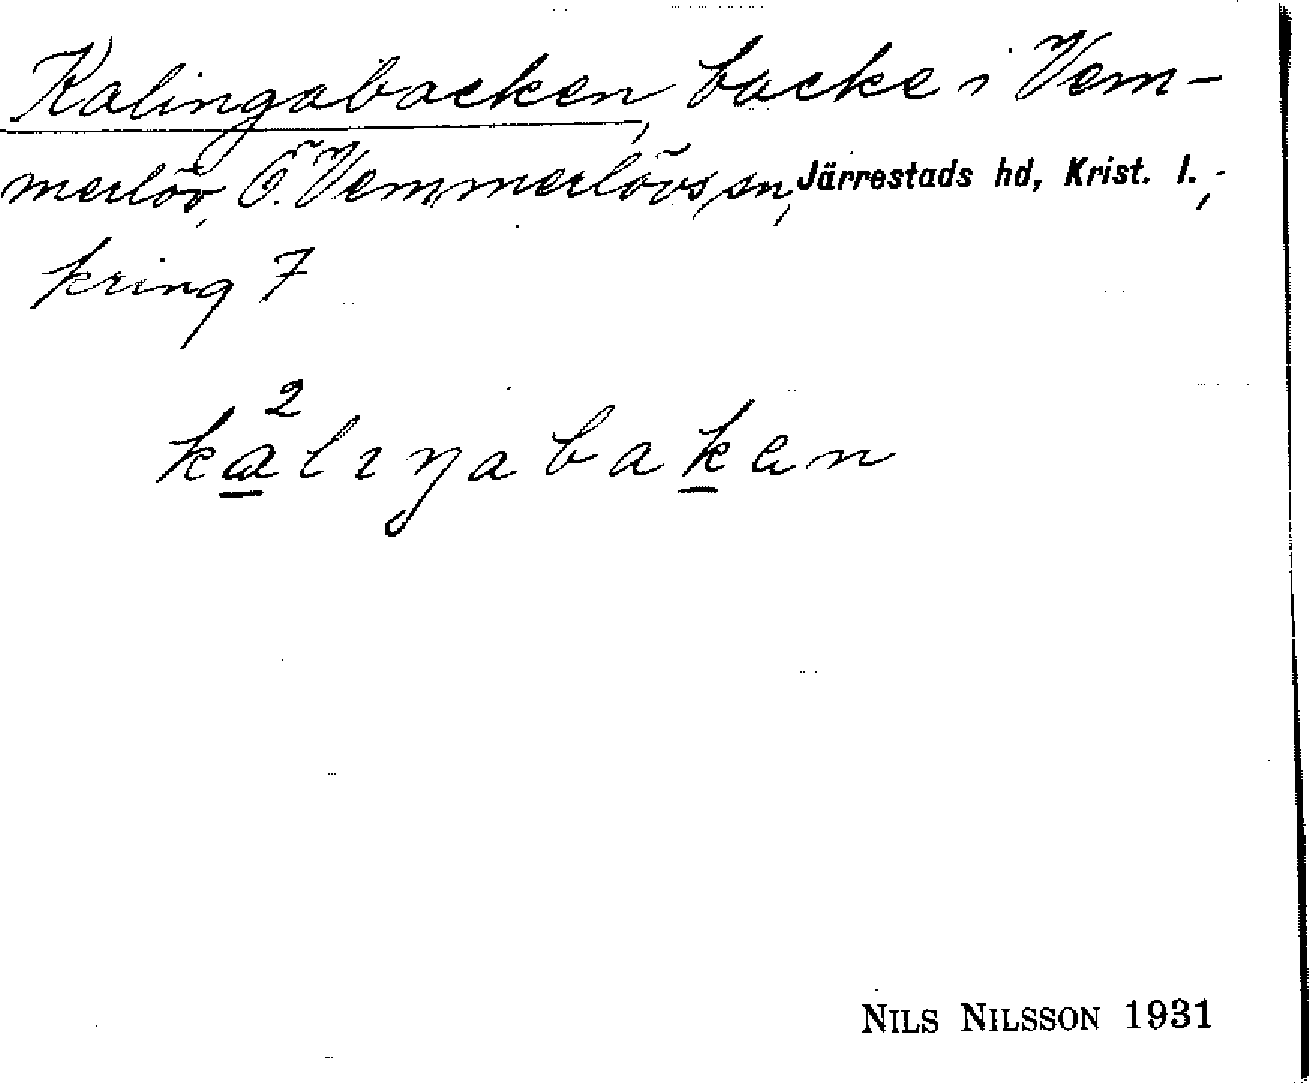 Kalingabacken, backe i Vem-
merlöv, Ö. Vemmerlövs sn, Järrestads hd, Krist. l.,-
kring 7
2
kalıŋabakæn
NILS NILSSON 1931